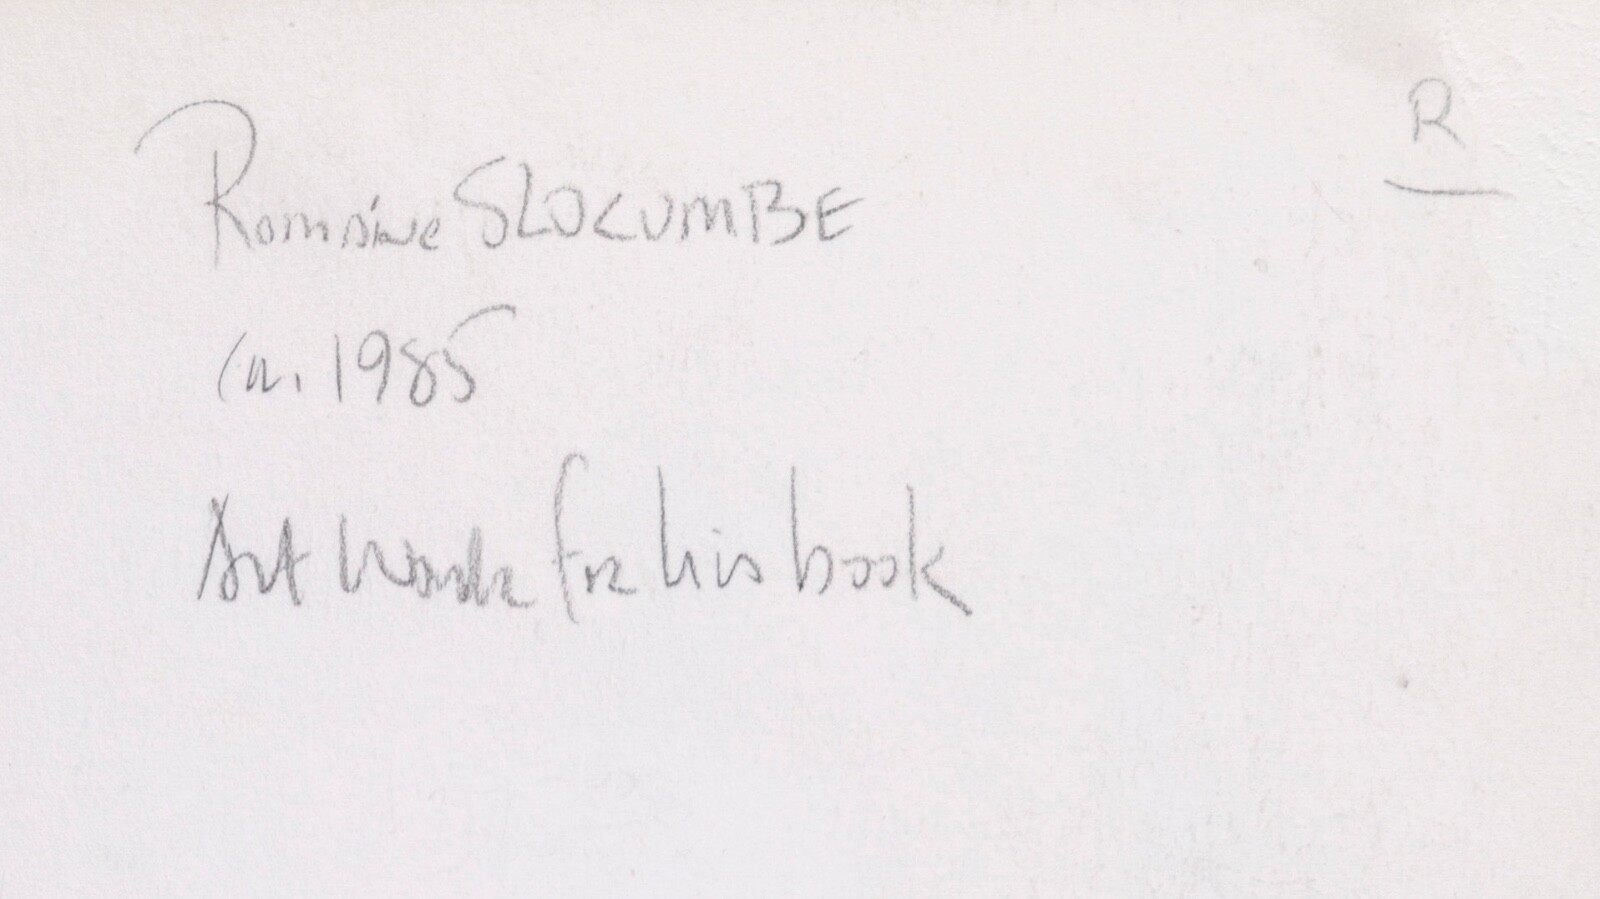 R
Romaine SLOCUMBE
Ca. 1985
Art Work for his book